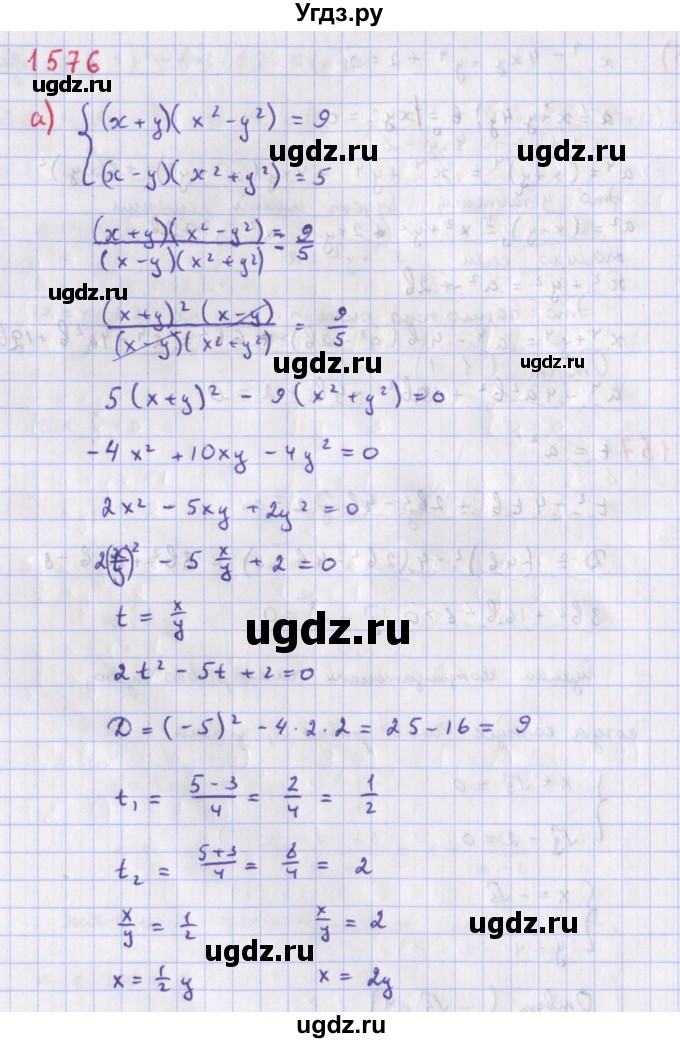 Угдз.ру
1576
а) { (x + y)( x² - y²) = 9
(x - y)( x² + y²) = 5
ugdz.ru
ugdz.ru
(x + y)( x² - y²) / (x - y)( x² + y²) = 9/5
ugdz.ru
(x + y)² (x - y) / (x - y)( x² + y²) = 9/5
ugdz.ru
5 (x + y)² - 9 ( x² + y²) = 0
- 4 x² + 10xy - 4y² = 0
ugdz.ru
2x² - 5xy + 2y² = 0
2(x/y)² - 5 x/y + 2 = 0
t = x/y
ugdz.ru
2t² - 5t + 2 = 0
D = (-5)² - 4·2·2 = 25 - 16 = 9
t₁ = 5 - 3 / 4 = 2/4 = 1/2
ugdz.ru
t₂ = 5 + 3 / 4 = 8/4 = 2
x/y = 1/2 x/y = 2
ugdz.ru
x = 1/2 y x = 2y
ugdz.ru